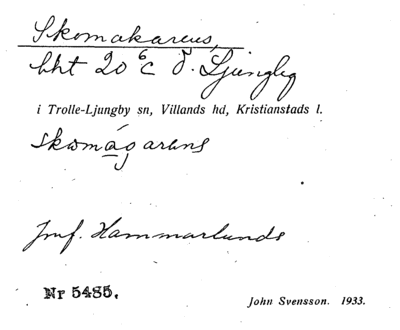 Skomakarens,
hht 20⁶C Ö. Ljungby
i Trolle-Ljungby sn, Villands hd, Kristianstads l.
skomågarens
Jmf. Hammarlunds
Nr 5485.
John Svensson. 1933.